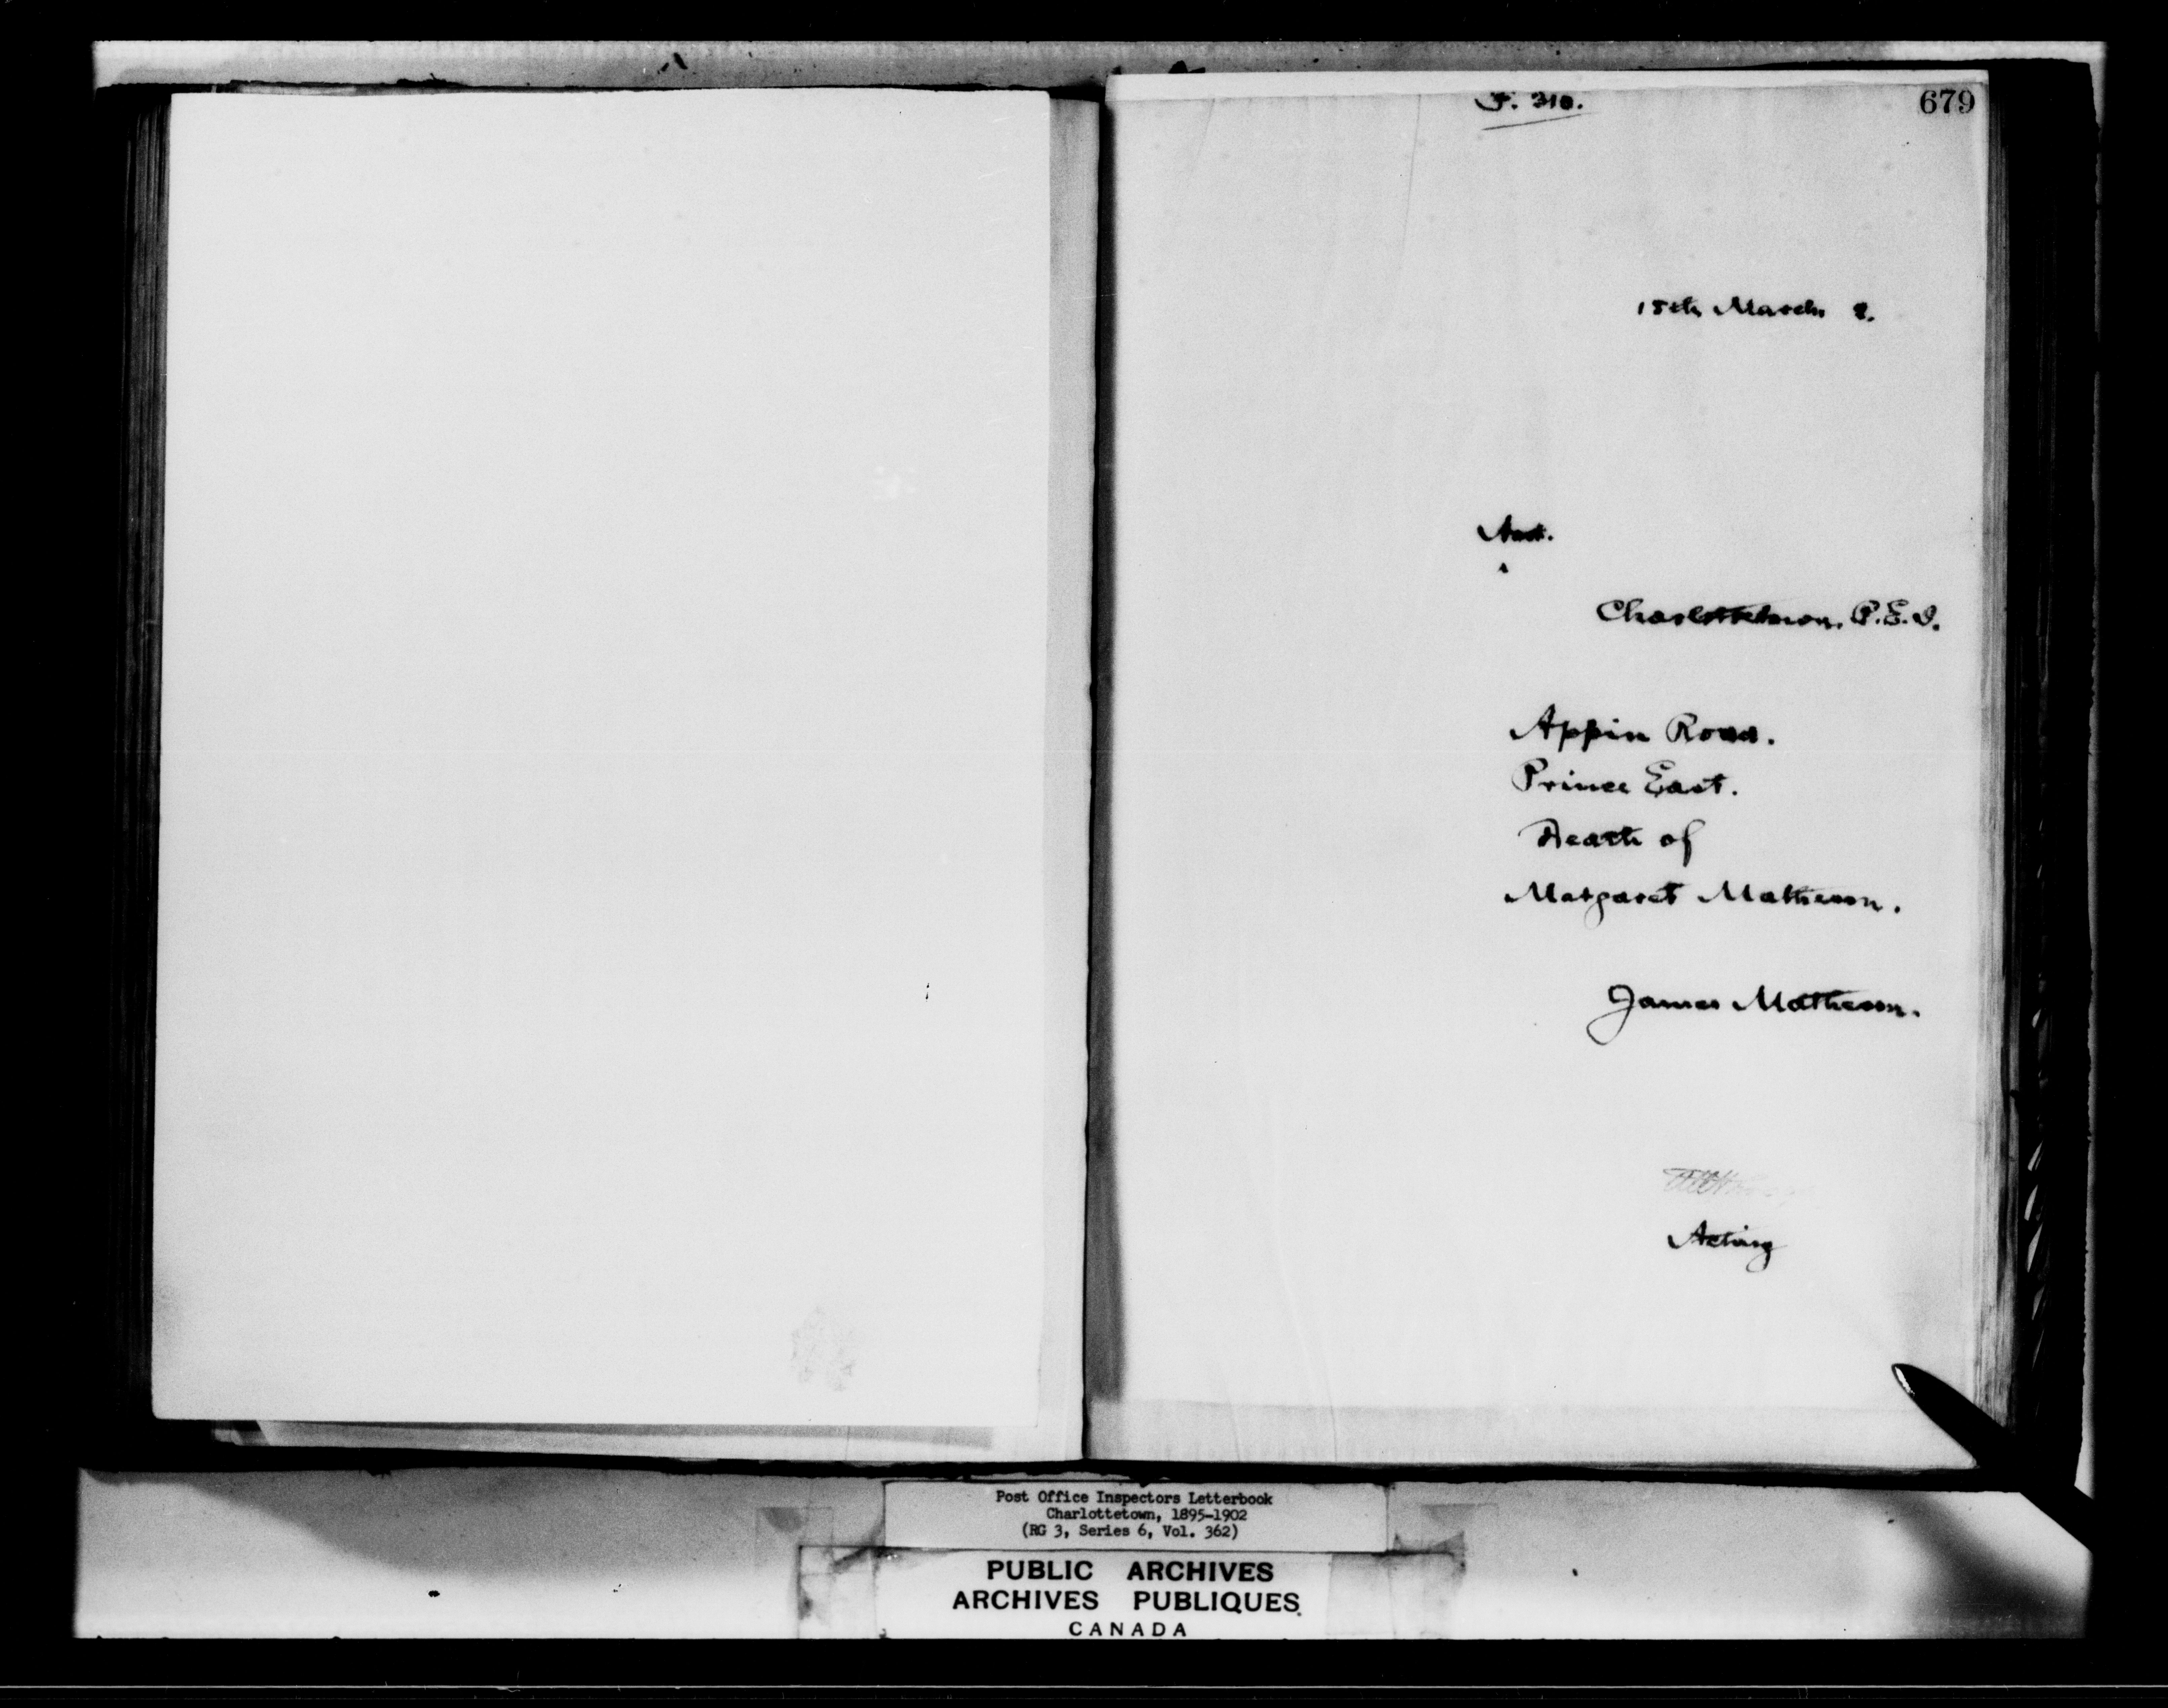 F. 310.
679
15th March 2.
Asst.
Charlottetown, P.E.I.
Appin Road.
Prince East.
Death of
Margaret Matheson.
James Matheson.
Acting
Post Office Inspectors Letterbook
Charlottetown, 1895-1902
(RG 3, Series 6, Vol. 362)
PUBLIC ARCHIVES
ARCHIVES PUBLIQUES
CANADA